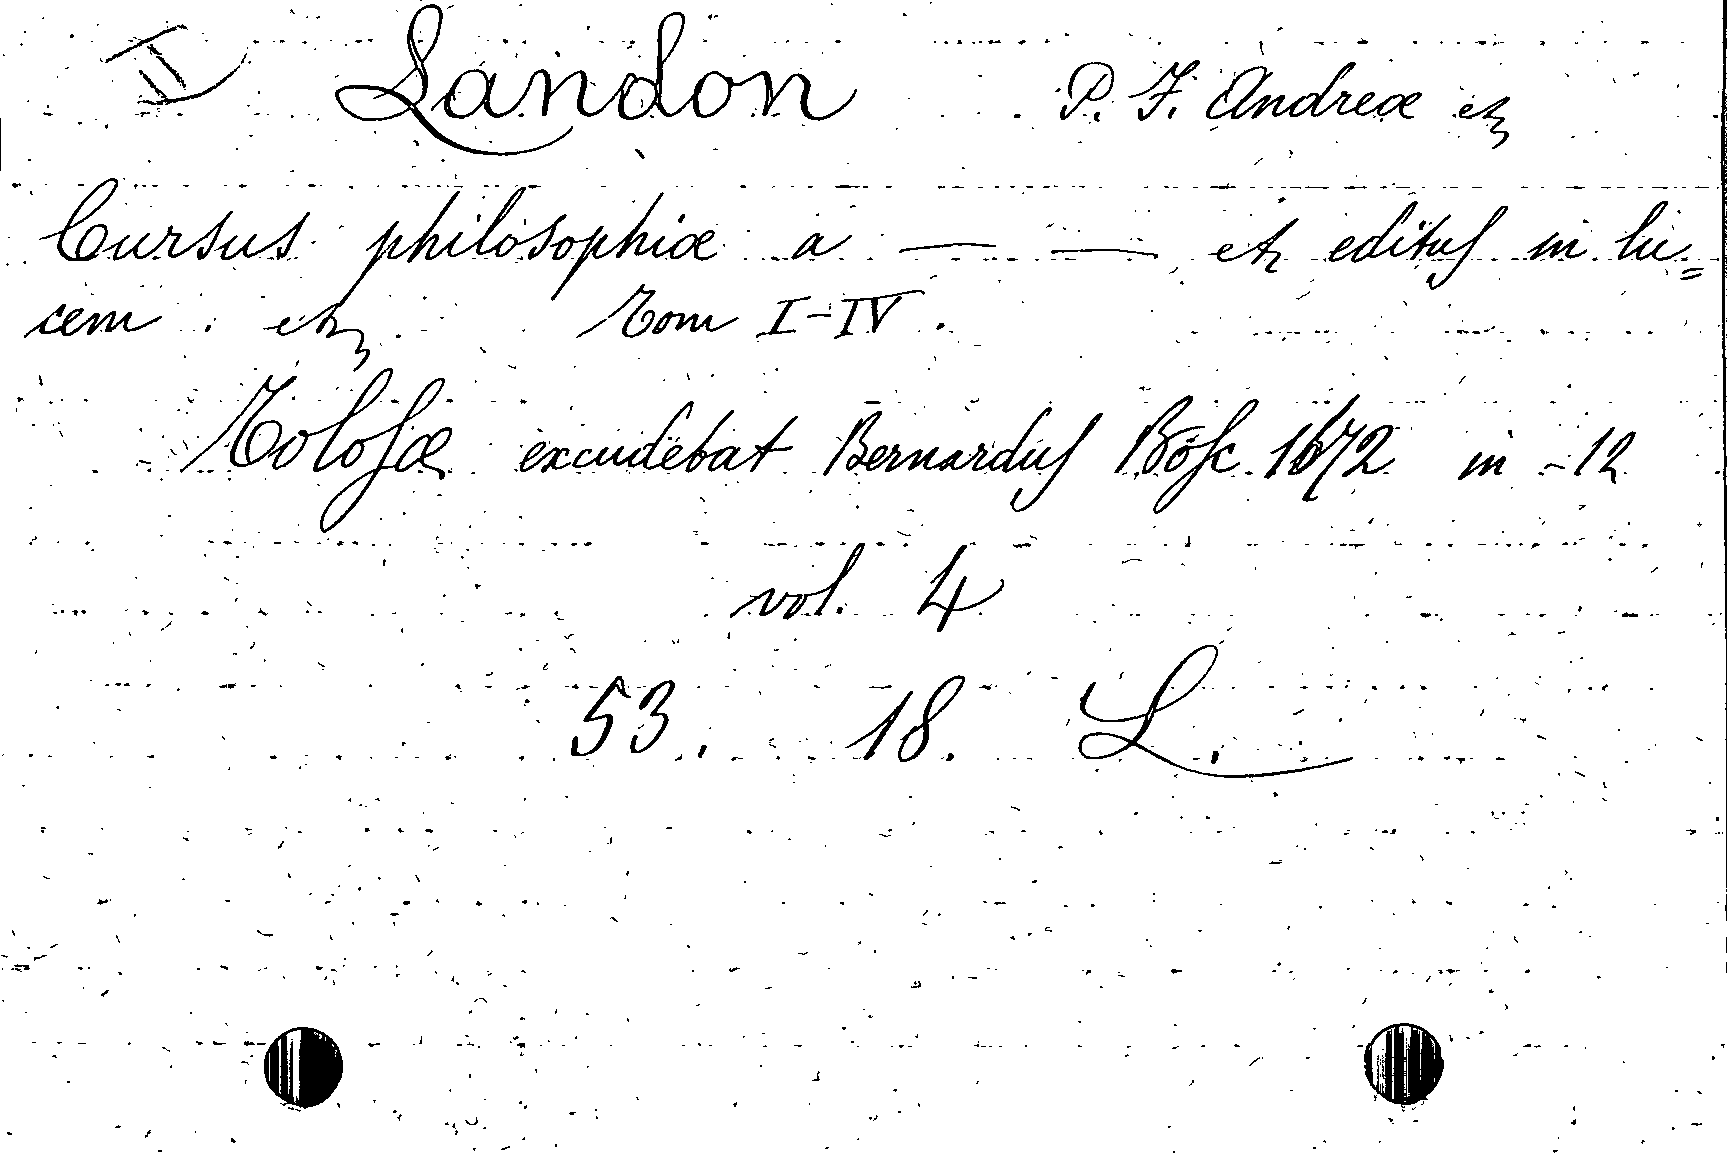 II Landon P. F. Andreæ etz
Cursus philosophiæ a — — etz edituſ in lu=
cem etz. Tom I-IV.
Toloſæ excudebat Bernarduſ Boſc 1672 in -12
vol. 4
53. 18. L.